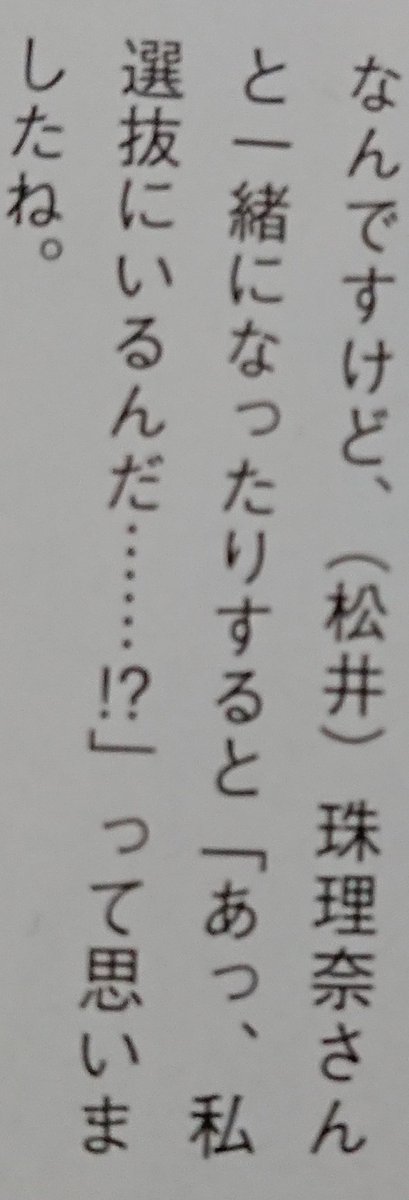 なんですけど、（松井）珠理奈さん
と一緒になったりすると「あっ、私
選抜にいるんだ……!?」って思いま
したね。